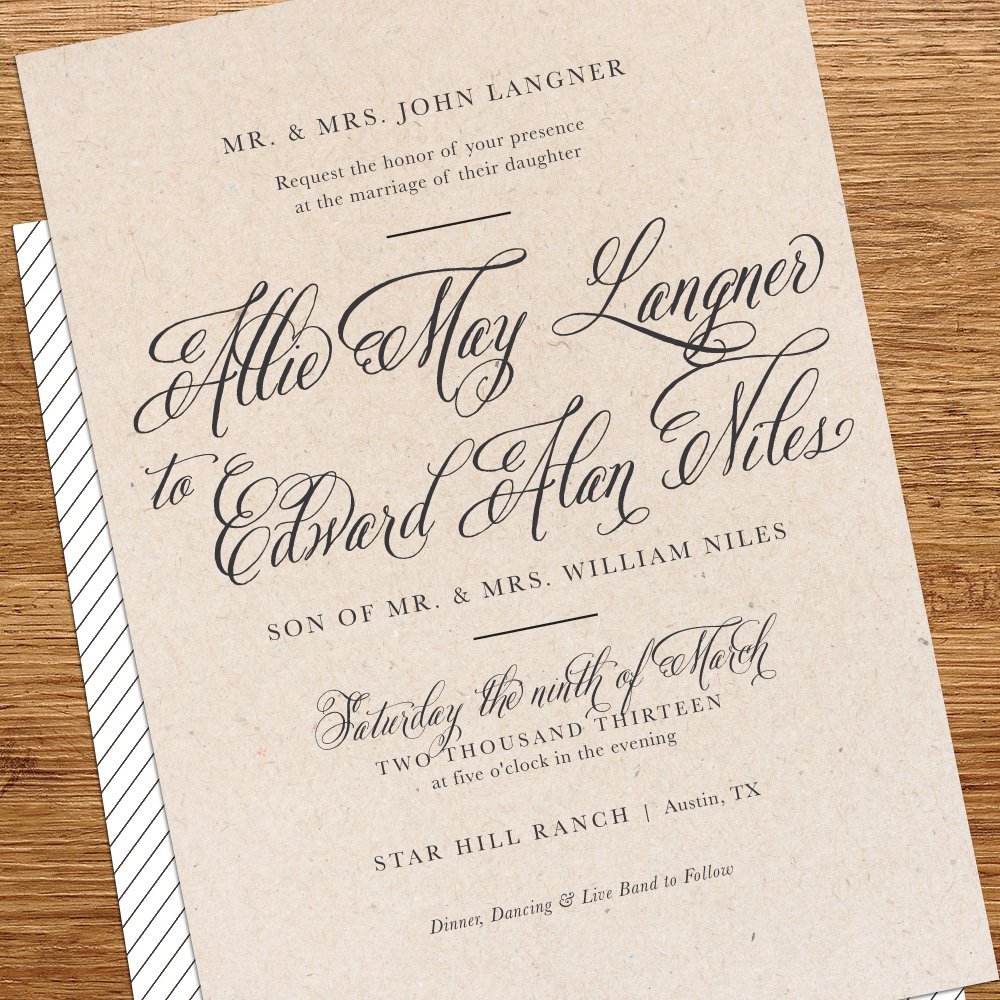 MR. & MRS. JOHN LANGNER
Request the honor of your presence
at the marriage of their daughter
Allie May Langner
to Edward Alan Niles
SON OF MR. & MRS. WILLIAM NILES
Saturday the ninth of March
TWO THOUSAND THIRTEEN
at five o'clock in the evening
STAR HILL RANCH | Austin, TX
Dinner, Dancing & Live Band to Follow